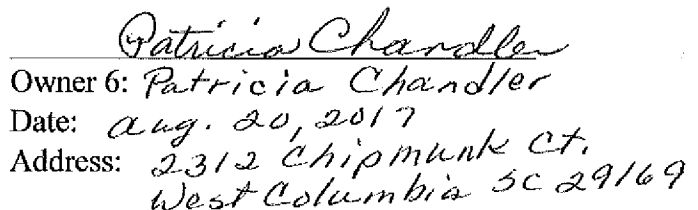 Patricia Chandler
Owner 6: Patricia Chandler
Date: Aug. 20, 2017
Address: 2312 Chipmunk Ct.
West Columbia SC 29169